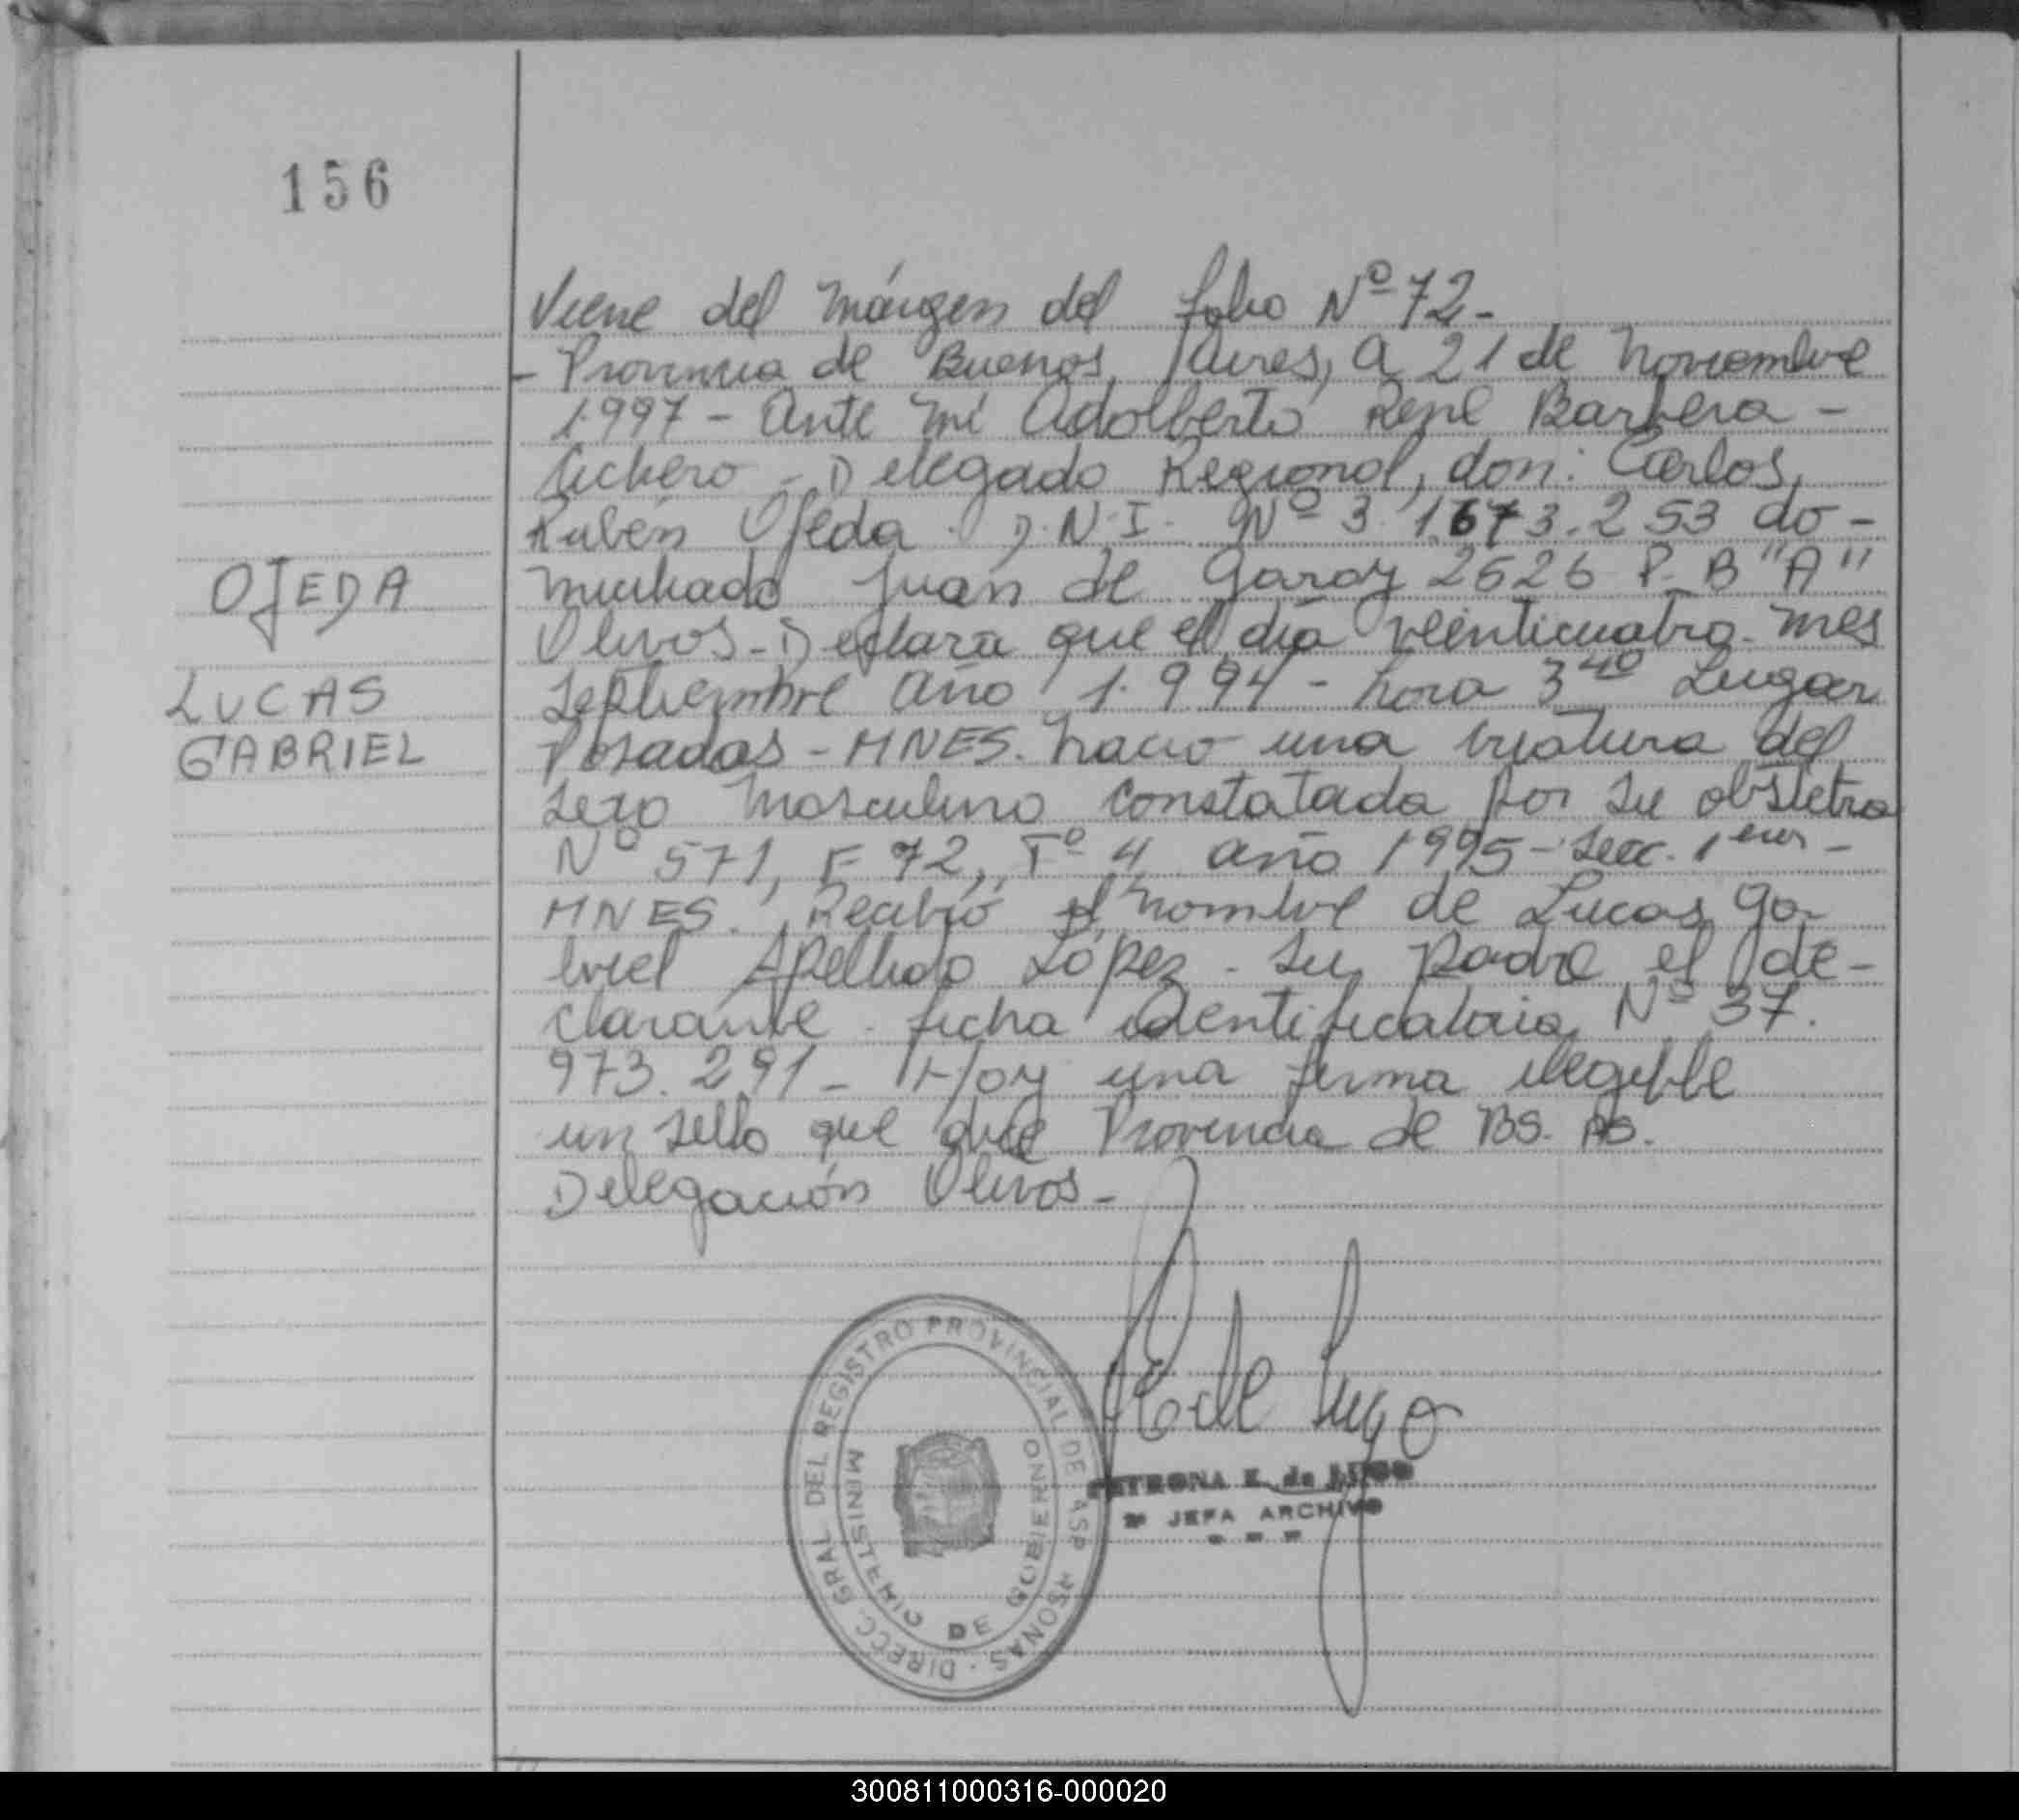 156
Viene del márgen del folio Nº 72-
- Provincia de Buenos Aires, a 21 de Noviembre
1.997 - Ante mi Adolberto René Barbera -
Cichero - Delegado Regional, don: Carlos
Rubén Ojeda. D.N.I. Nº 3 1.673.253 do-
OJEDA
miciliado Juan de Garay 2626 P. B "A"
Olivos - Declara que el día veinticuatro - mes
LUCAS
Septiembre año 1.994 - hora 3⁴⁰ Lugar
GABRIEL
Posadas - MNES. Nació una criatura del
sexo masculino constatada por su obstetra
Nº 571, F 72, Tº 4 año 1995 - Secc. 1era -
MNES. Recibió el nombre de Lucas Ga-
briel Apellido López - Su padre el de-
clarante. ficha identificatoria Nº 37.
973.291 - Hay una firma ilegible
un sello que dice Provincia de BS. AS.
Delegación Olivos -
DIRECC. GRAL DEL REGISTRO PROVINCIAL DE AS PERSONAS
MINISTERIO DE GOBIERNO
PETRONA E. de LUGO
JEFA ARCHIVO
300811000316-000020